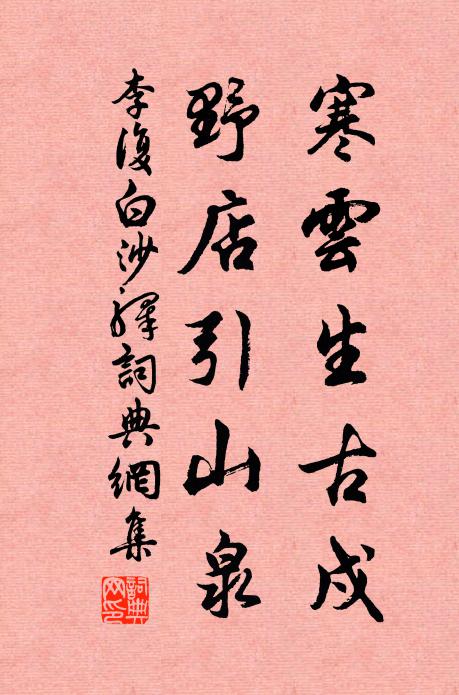 寒雲生古戍
野店引山泉
李復白沙驛詞典網集
詞典
网印